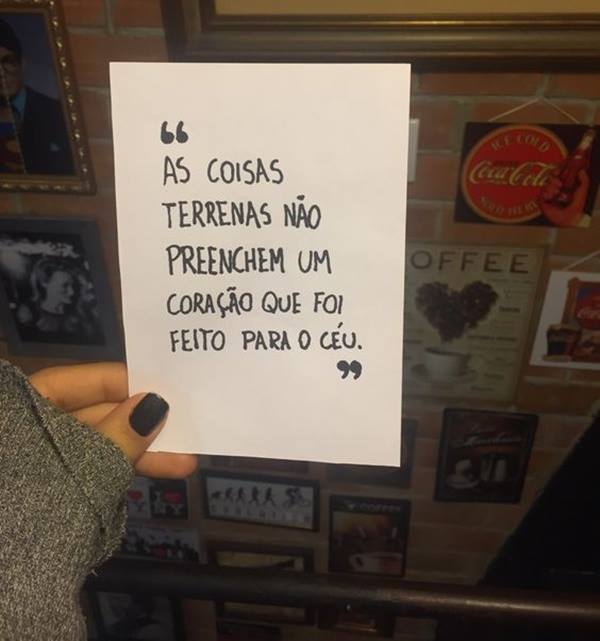 “
AS COISAS
TERRENAS NÃO
PREENCHEM UM
CORAÇÃO QUE FOI
FEITO PARA O CÉU.
”
ICE COLD
Coca-Cola
SOLD HERE
OFFEE